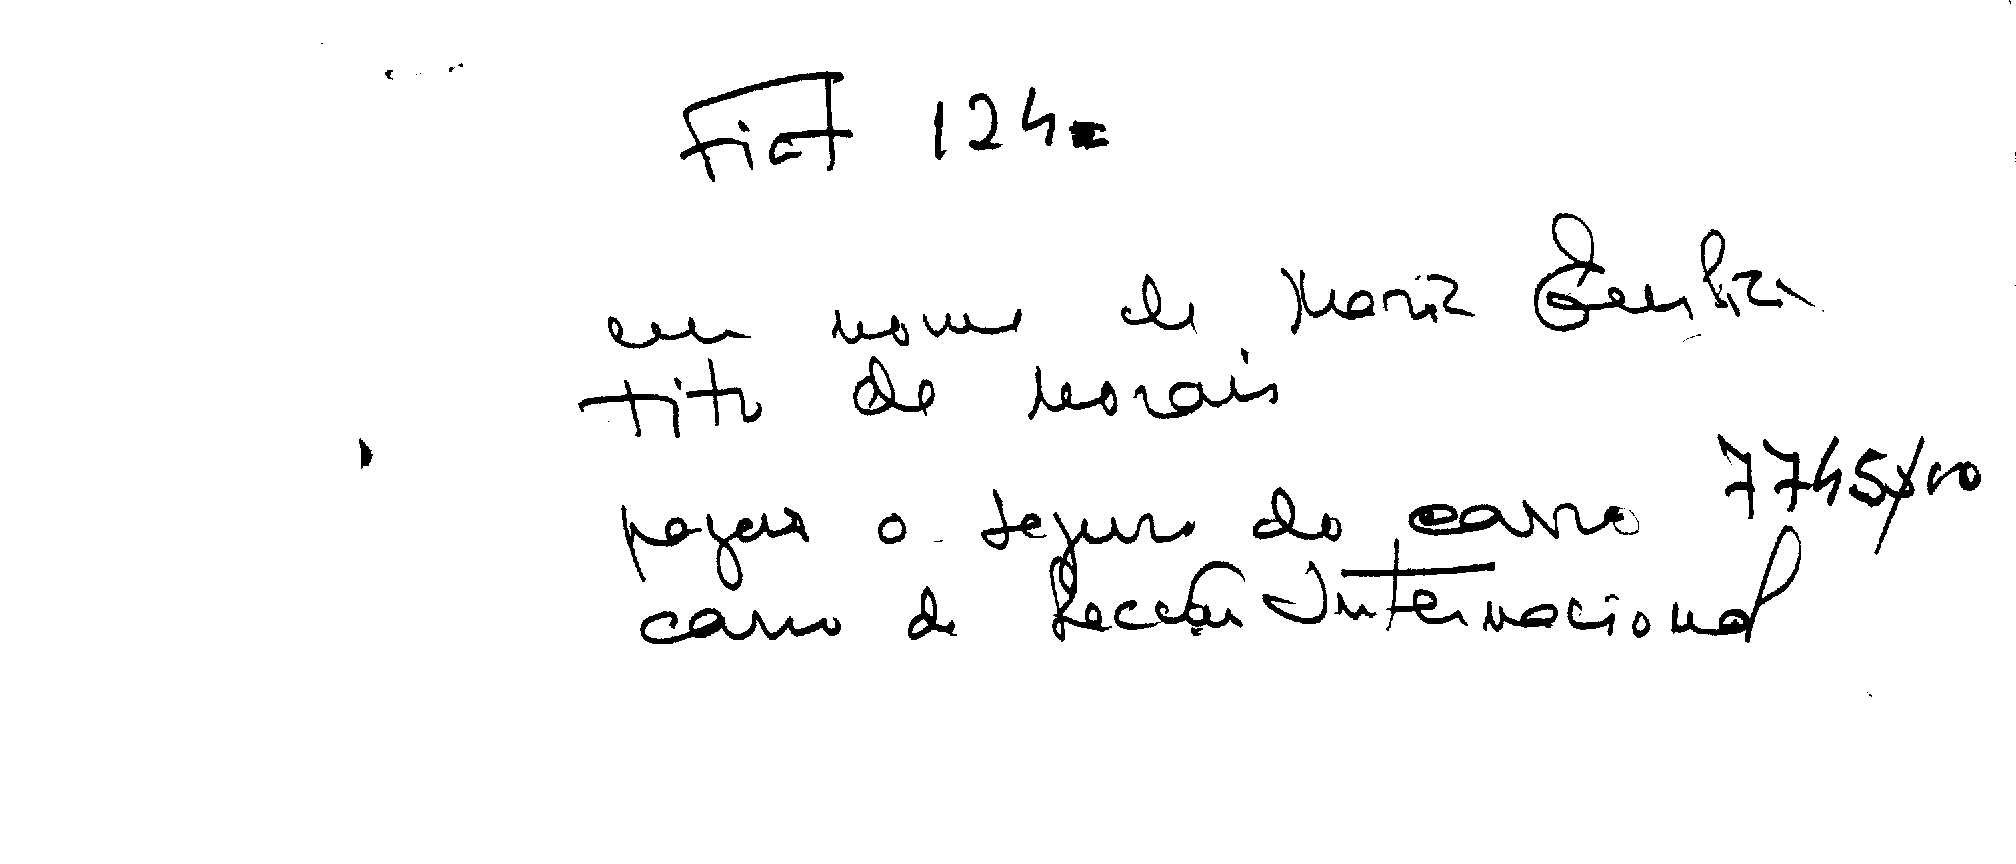 Fiat 124
em nome de Maria Emília
Tito de Morais
pagar o seguro do carro 7745$00
carro de Secção Internacional